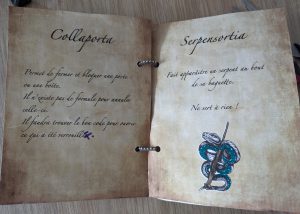 Collaporta
Permet de fermer et bloquer une porte
ou une boîte.
Il n'existe pas de formule pour annuler
celle-ci.
Il faudra trouver le bon code pour ouvrir
ce qui a été verrouillé.
Serpensortia
Fait apparaître un serpent au bout
de sa baguette.
Ne sert à rien !